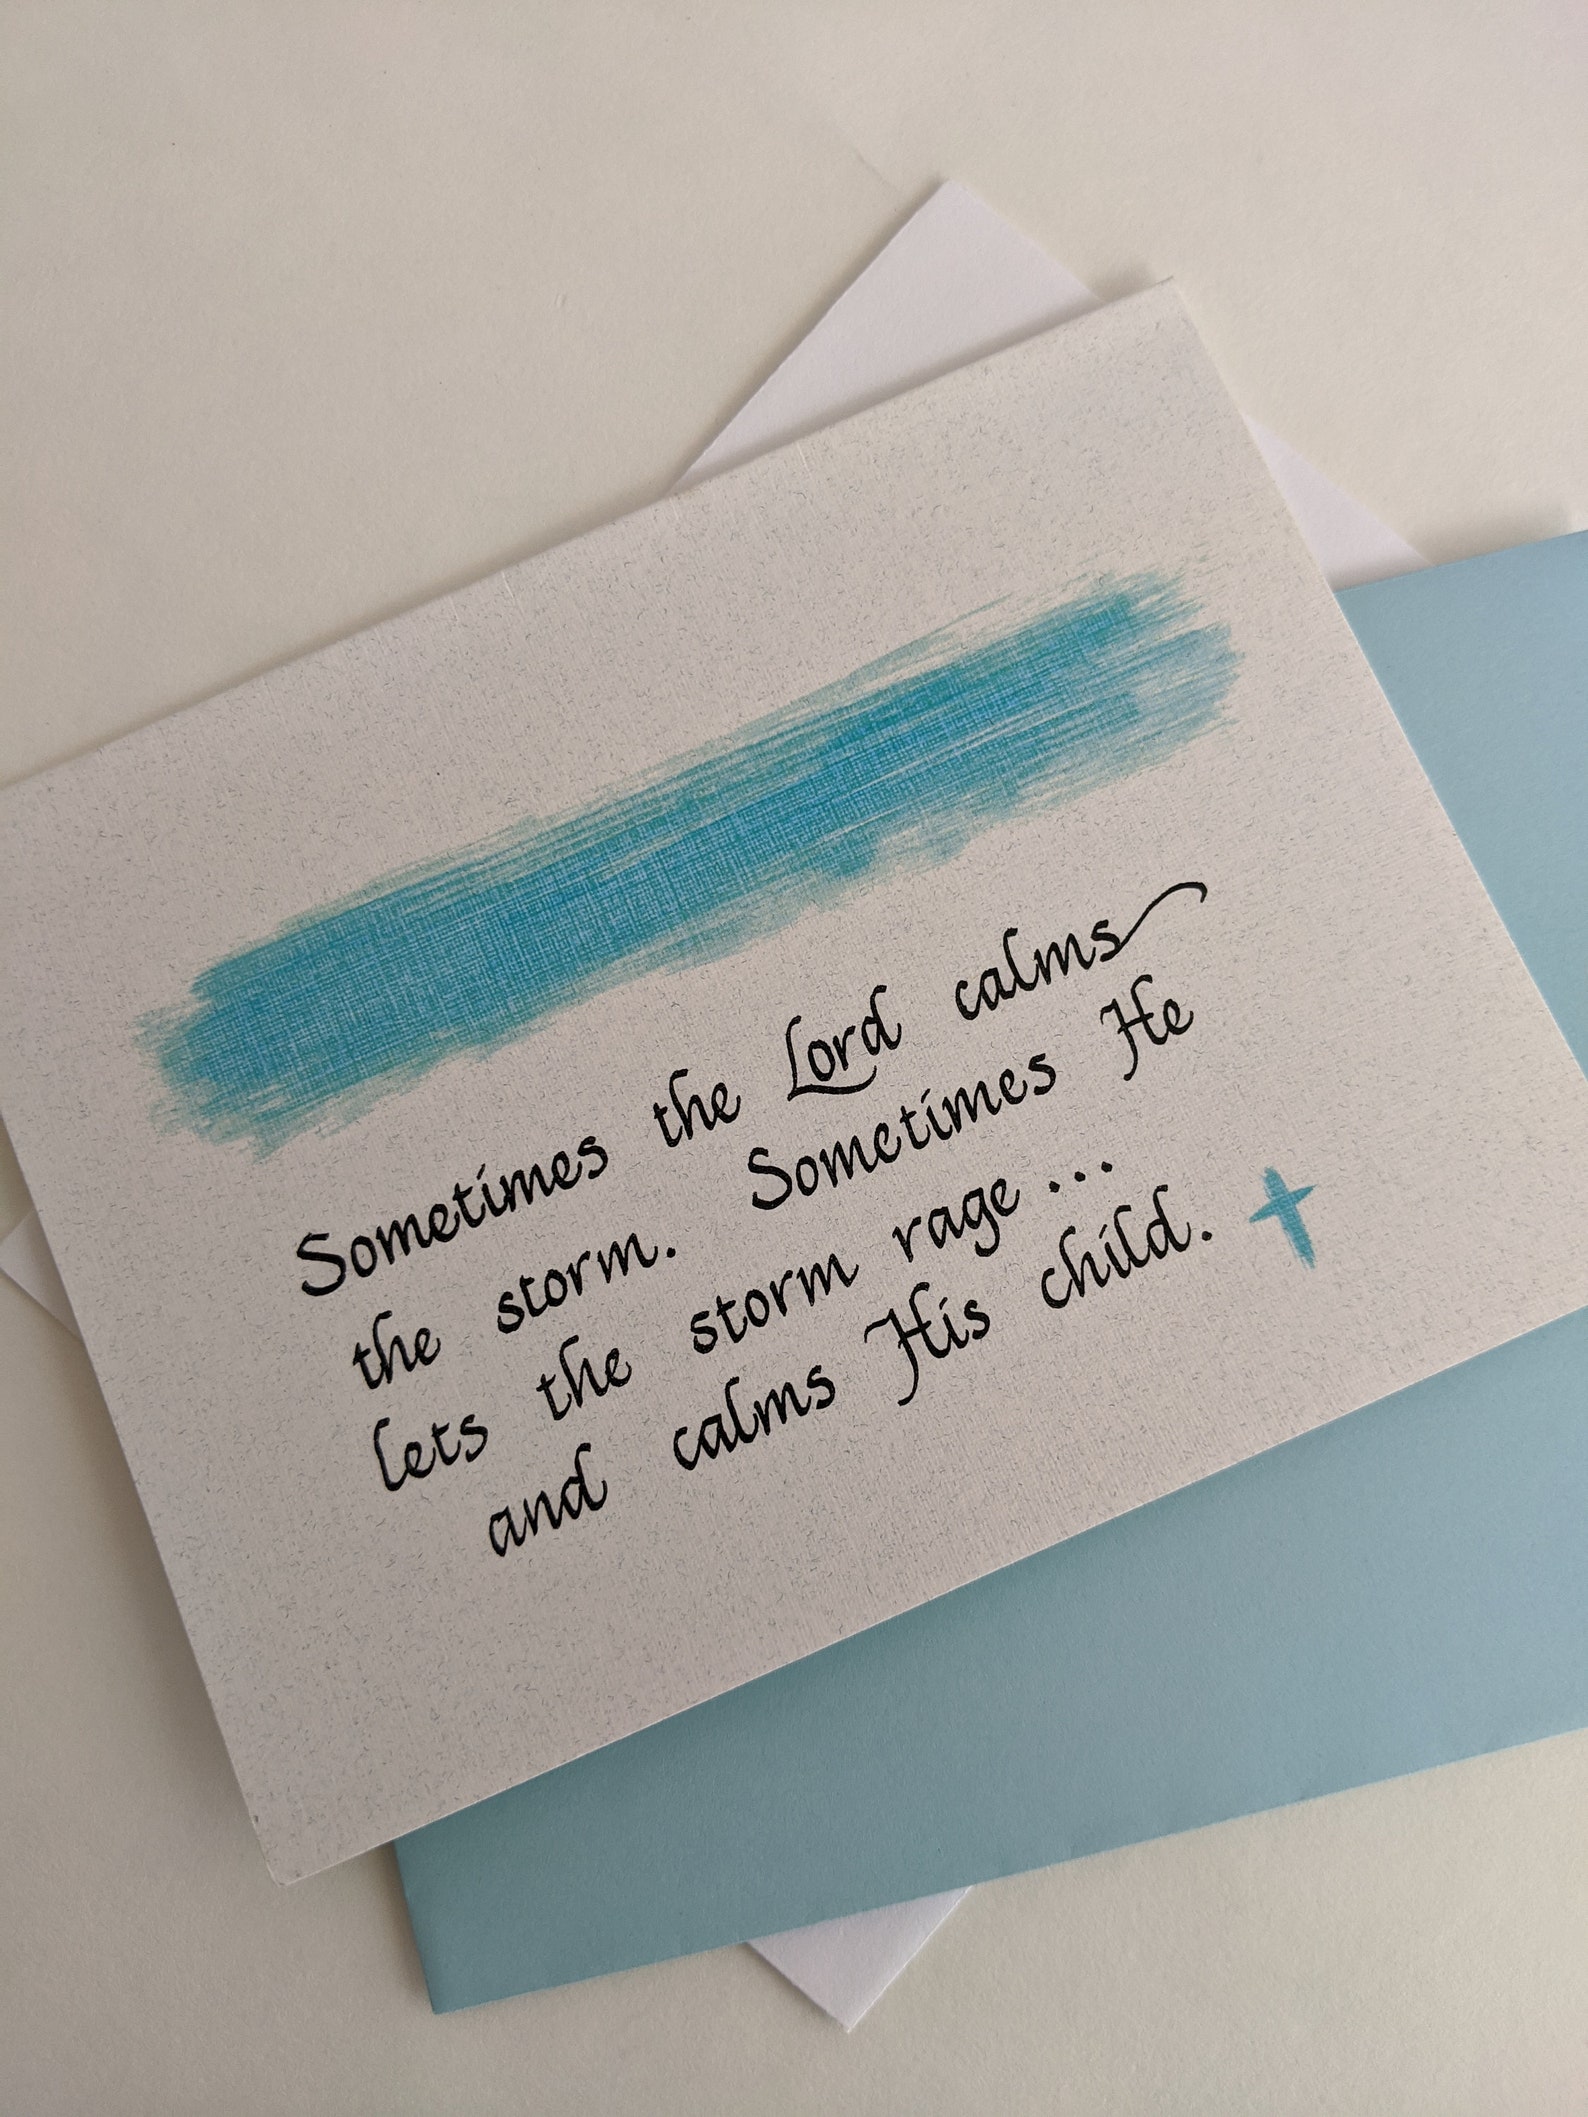 Sometimes the Lord calms
the storm. Sometimes He
lets the storm rage ...
and calms His child.